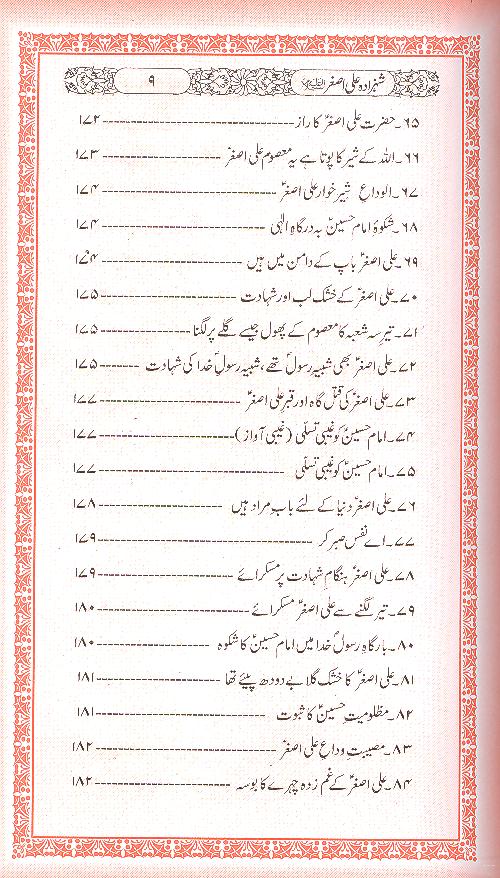 شہزادہ علی اصغرؑ ۹
۶۵۔ حضرت علی اصغرؑ کا راز ۱۷۲
۶۶۔ اللہ کے شیر کا پوتا ہے یہ معصوم علی اصغرؑ ۱۷۳
۶۷۔ الوداع شیر خوار علی اصغرؑ ۱۷۴
۶۸۔ شکوۂ امام حسینؑ بہ درگاہِ الٰہی ۱۷۴
۶۹۔ علی اصغرؑ باپ کے دامن میں ہیں ۱۷۴
۷۰۔ علی اصغرؑ کے خشک لب اور شہادت ۱۷۵
۷۱۔ تیرِ سہ شعبہ کا معصوم کے پھول جیسے گلے پر لگنا ۱۷۵
۷۲۔ علی اصغرؑ بھی شبیہِ رسولؐ تھے، شبیہِ رسولِؐ خدا کی شہادت ۱۷۵
۷۳۔ علی اصغرؑ کی قتل گاہ اور قبرِ علی اصغرؑ ۱۷۷
۷۴۔ امام حسینؑ کو غیبی تسلّی (غیبی آواز) ۱۷۷
۷۵۔ امام حسینؑ کو غیبی تسلّی ۱۷۷
۷۶۔ علی اصغرؑ دنیا کے لئے بابِ مراد ہیں ۱۷۸
۷۷۔ اے نفس صبر کر ۱۷۹
۷۸۔ علی اصغرؑ ہنگامِ شہادت پر مسکرائے ۱۷۹
۷۹۔ تیر لگنے سے علی اصغرؑ مسکرائے ۱۸۰
۸۰۔ بارگاہِ رسولِؐ خدا میں امام حسینؑ کا شکوہ ۱۸۰
۸۱۔ علی اصغرؑ کا خشک گلا بے دودھ پیئے تھا ۱۸۱
۸۲۔ مظلومیتِ حسینؑ کا ثبوت ۱۸۱
۸۳۔ مصیبتِ وداعِ علی اصغرؑ ۱۸۲
۸۴۔ علی اصغرؑ کے غم زدہ چہرے کا بوسہ ۱۸۲